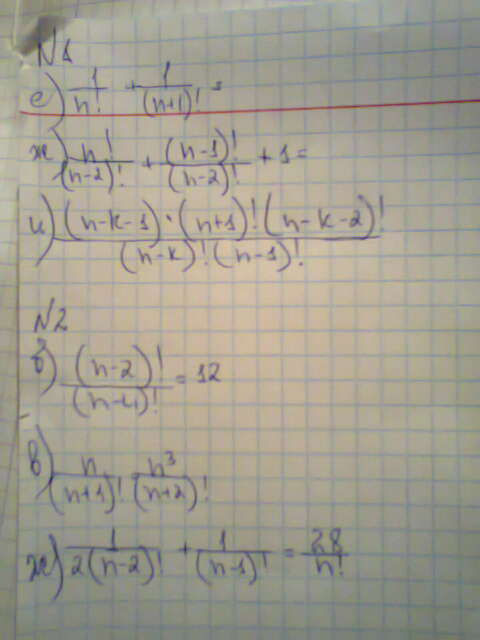 №1
е) 1/n! + 1/(n+1)! =
ж) n!/(n-2)! + (n-1)!/(n-2)! + 1 =
и) (n-k-1)·(n+1)!(n-k-2)!/(n-k)!(n-1)!
№2
б) (n-2)!/(n-4)! = 12
в) n/(n+1)! n³/(n+2)!
ж) 1/2(n-2)! + 1/(n-1)! = 28/n!